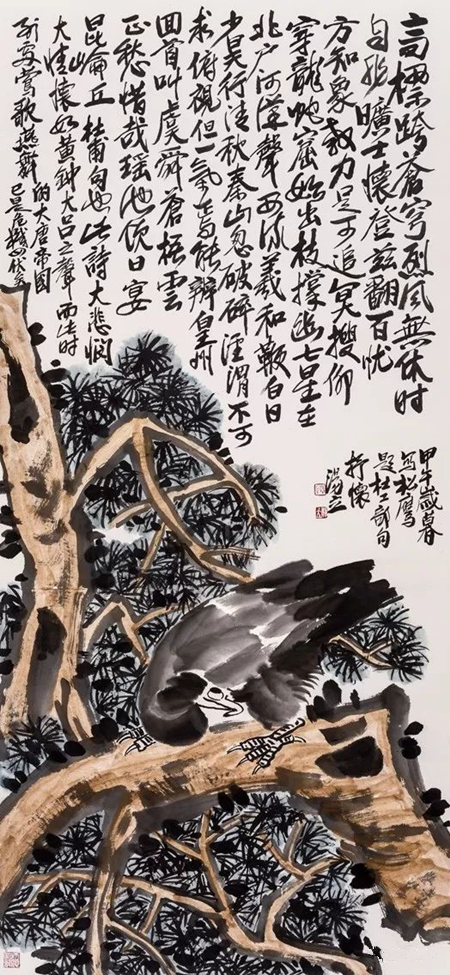 高標跨蒼穹烈风無休时
自非曠士懷登兹翻百忧
方知象教力足可追冥搜仰
穿龍蛇窟始出枝撑幽七星在
北户河漢聲西流羲和鞭白日
少昊行清秋秦山忽破碎涇渭不可
求俯視但一氣焉能辨皇州
回首叫虞舜蒼梧雲
正愁惜哉瑶池饮日宴
昆崙丘 杜甫句也此詩大悲悯
大情懷如黄钟大吕之聲而此时
到處莺歌燕舞的大唐帝国
已是危機四伏矣
甲午歲春
写松鹰
題杜工部句
抒懷